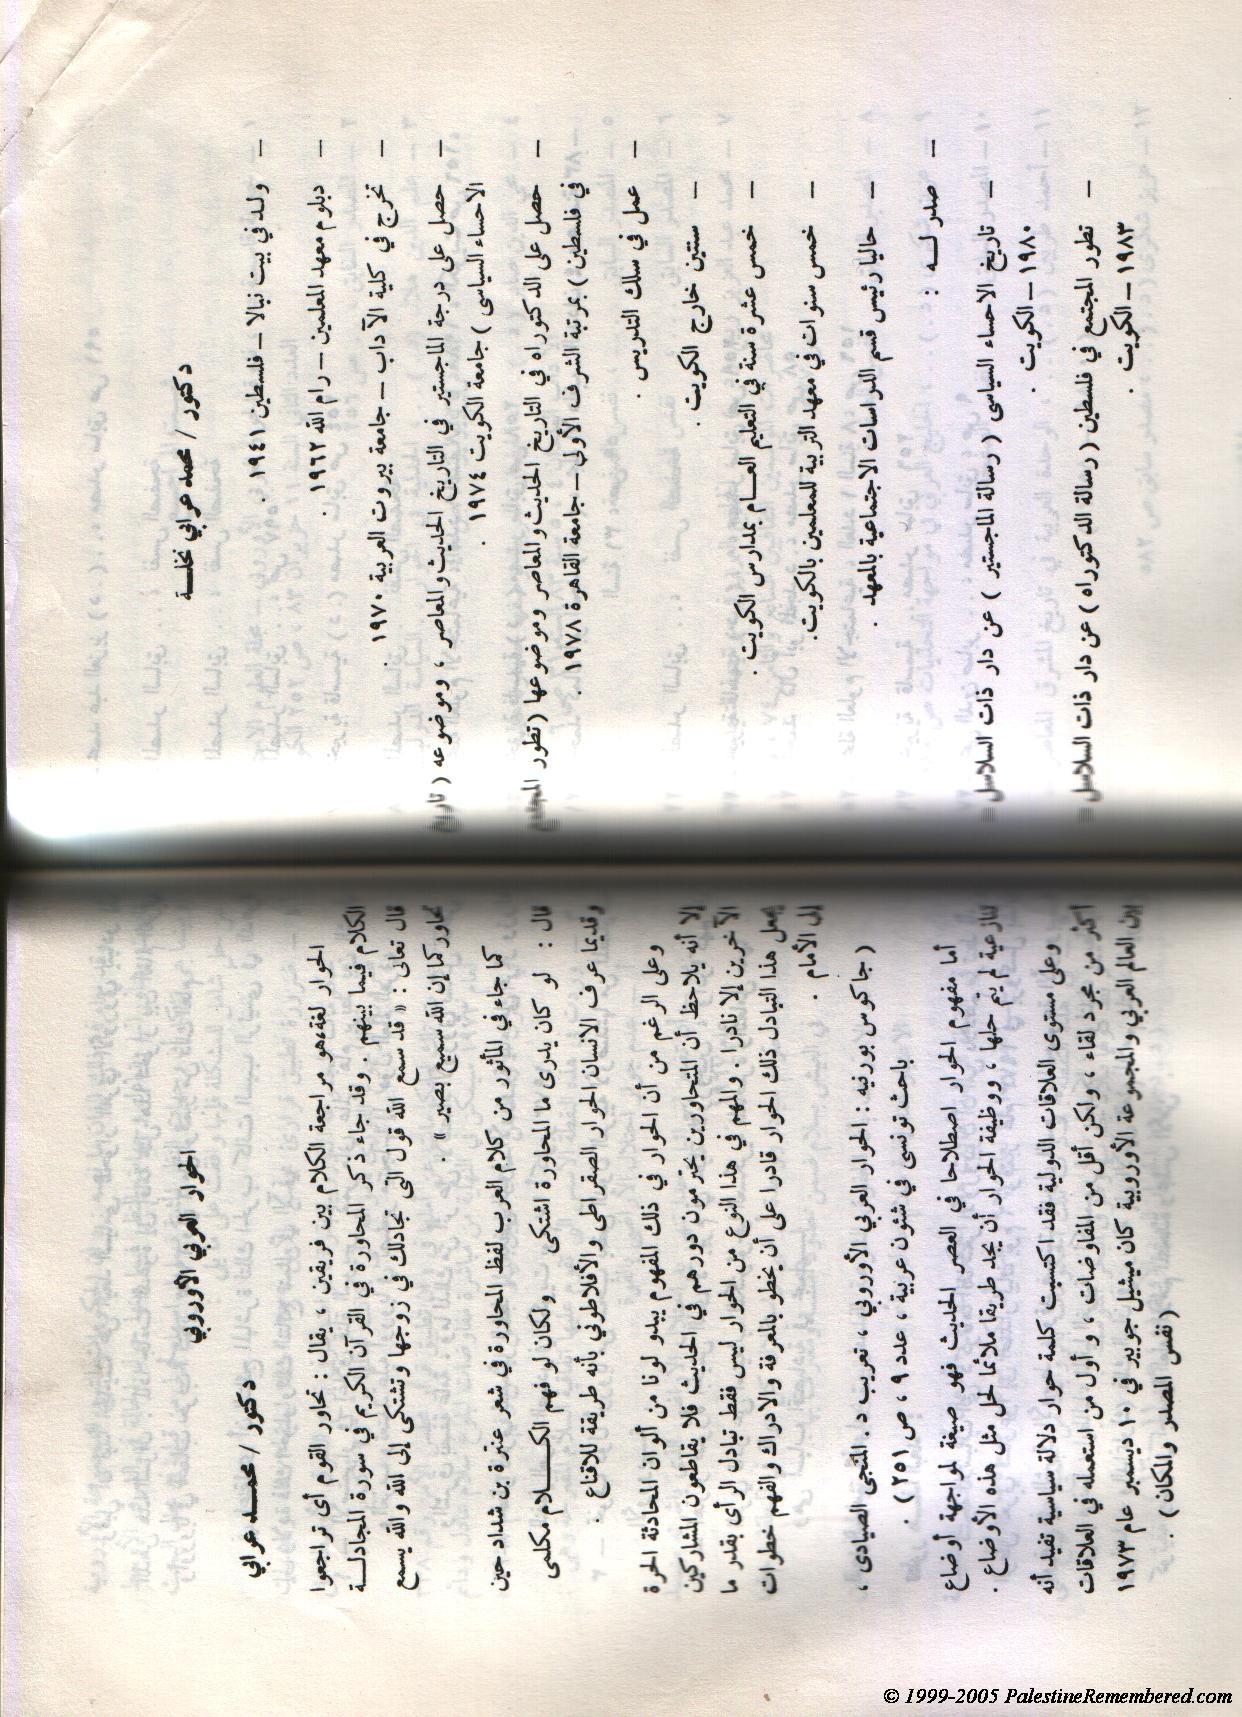 دكتور / محمد عرابي نخلـــة
— ولد في بيت نبالا – فلسطين ١٩٤١ .
— دبلوم معهد المعلمين – رام الله ١٩٦٢
— تخرج في كلية الآداب – جامعة بيروت العربية ١٩٧٠ .
— حصل على درجة الماجستير في التاريخ الحديث والمعاصر ، وموضوعه ( تاريخ
الاحساء السياسى ) جامعة الكويت ١٩٧٤ .
— حصل على الدكتوراه في التاريخ الحديث والمعاصر وموضوعها ( تطور المجتمع
في فلسطين ) بمرتبة الشرف الأولى – جامعة القاهرة ١٩٧٨ .
— عمل في سلك التدريس .
— سنتين خارج الكويت .
— خمس عشرة سنة في التعليم العـــام بمدارس الكويت .
— خمس سنوات في معهد التربية للمعلمين بالكويت .
— حاليا رئيس قسم الدراسات الاجتماعية بالمعهد .
— صدر لـــه :
— تاريخ الاحساء السياسى ( رسالة الماجستير ) عن دار ذات السلاسل
١٩٨٠ – الكويت .
— تطور المجتمع في فلسطين ( رسالة الدكتوراه ) عن دار ذات السلاسل
١٩٨٣ – الكويت .
الحوار العربي الأوروبي
دكتور / محمـــد عرابي
الحوار لغة هو مراجعة الكلام بين فريقين ، يقال : تحاور القوم أى تراجعوا
الكلام فيما بينهم . وقد جاء ذكر المحاورة في القرآن الكريم في سورة المجادلـــة
قال تعالى : « قد سمع الله قول التى تجادلك في زوجها وتشتكى إلى الله والله يسمع
تحاوركما إن الله سميع بصير » .
كما جاء في المأثور من كلام العرب لفظ المحاورة في شعر عنترة بن شداد حين
قال : لو كان يدرى ما المحاورة اشتكى ولكان لو فهم الكـــــلام مكلمى
وقديما عرف الانسان الحوار السقراطى والأفلاطوني بأنه طريقة للاقناع .
وعلى الرغم من أن الحوار في ذلك المفهوم يبدو لونا من ألوان المحادثة الحرة
إلا أنه يلاحظ أن المتحاورين يحترمون دورهم في الحديث فلا يقاطعون المشاركين
الآخرين إلا نادرا . والمهم في هذا النوع من الحوار ليس فقط تبادل الرأى بقدر ما
يجعل هذا التبادل ذلك الحوار قادرا على أن يخطو بالمعرفة والادراك والفهم خطوات
إلى الأمام .
( جاكوس بورنيه : الحوار العربي الأوروبي ، تعريب د . المنجى الصيادى ،
باحث تونسى في شئون عربية ، عدد ٩ ، ص ٢٥١ ) .
أما مفهوم الحوار اصطلاحا في العصر الحديث فهو صيغة لمواجهة أوضاع
تنازعية لم يتم حلها ، ووظيفة الحوار أن يجد طريقا ملائما لحل مثل هذه الأوضاع .
وعلى مستوى العلاقات الدولية فقد اكتسبت كلمة حوار دلالة سياسية تفيد أنه
أكثر من مجرد لقاء ، ولكن أقل من المفاوضات ، وأول من استعمله في العلاقات
بين العالم العربي والمجموعة الأوروبية كان ميشيل جوبير في ١٠ ديسمبر عام ١٩٧٣
( نفس المصدر والمكان ) .
© 1999-2005 PalestineRemembered.com